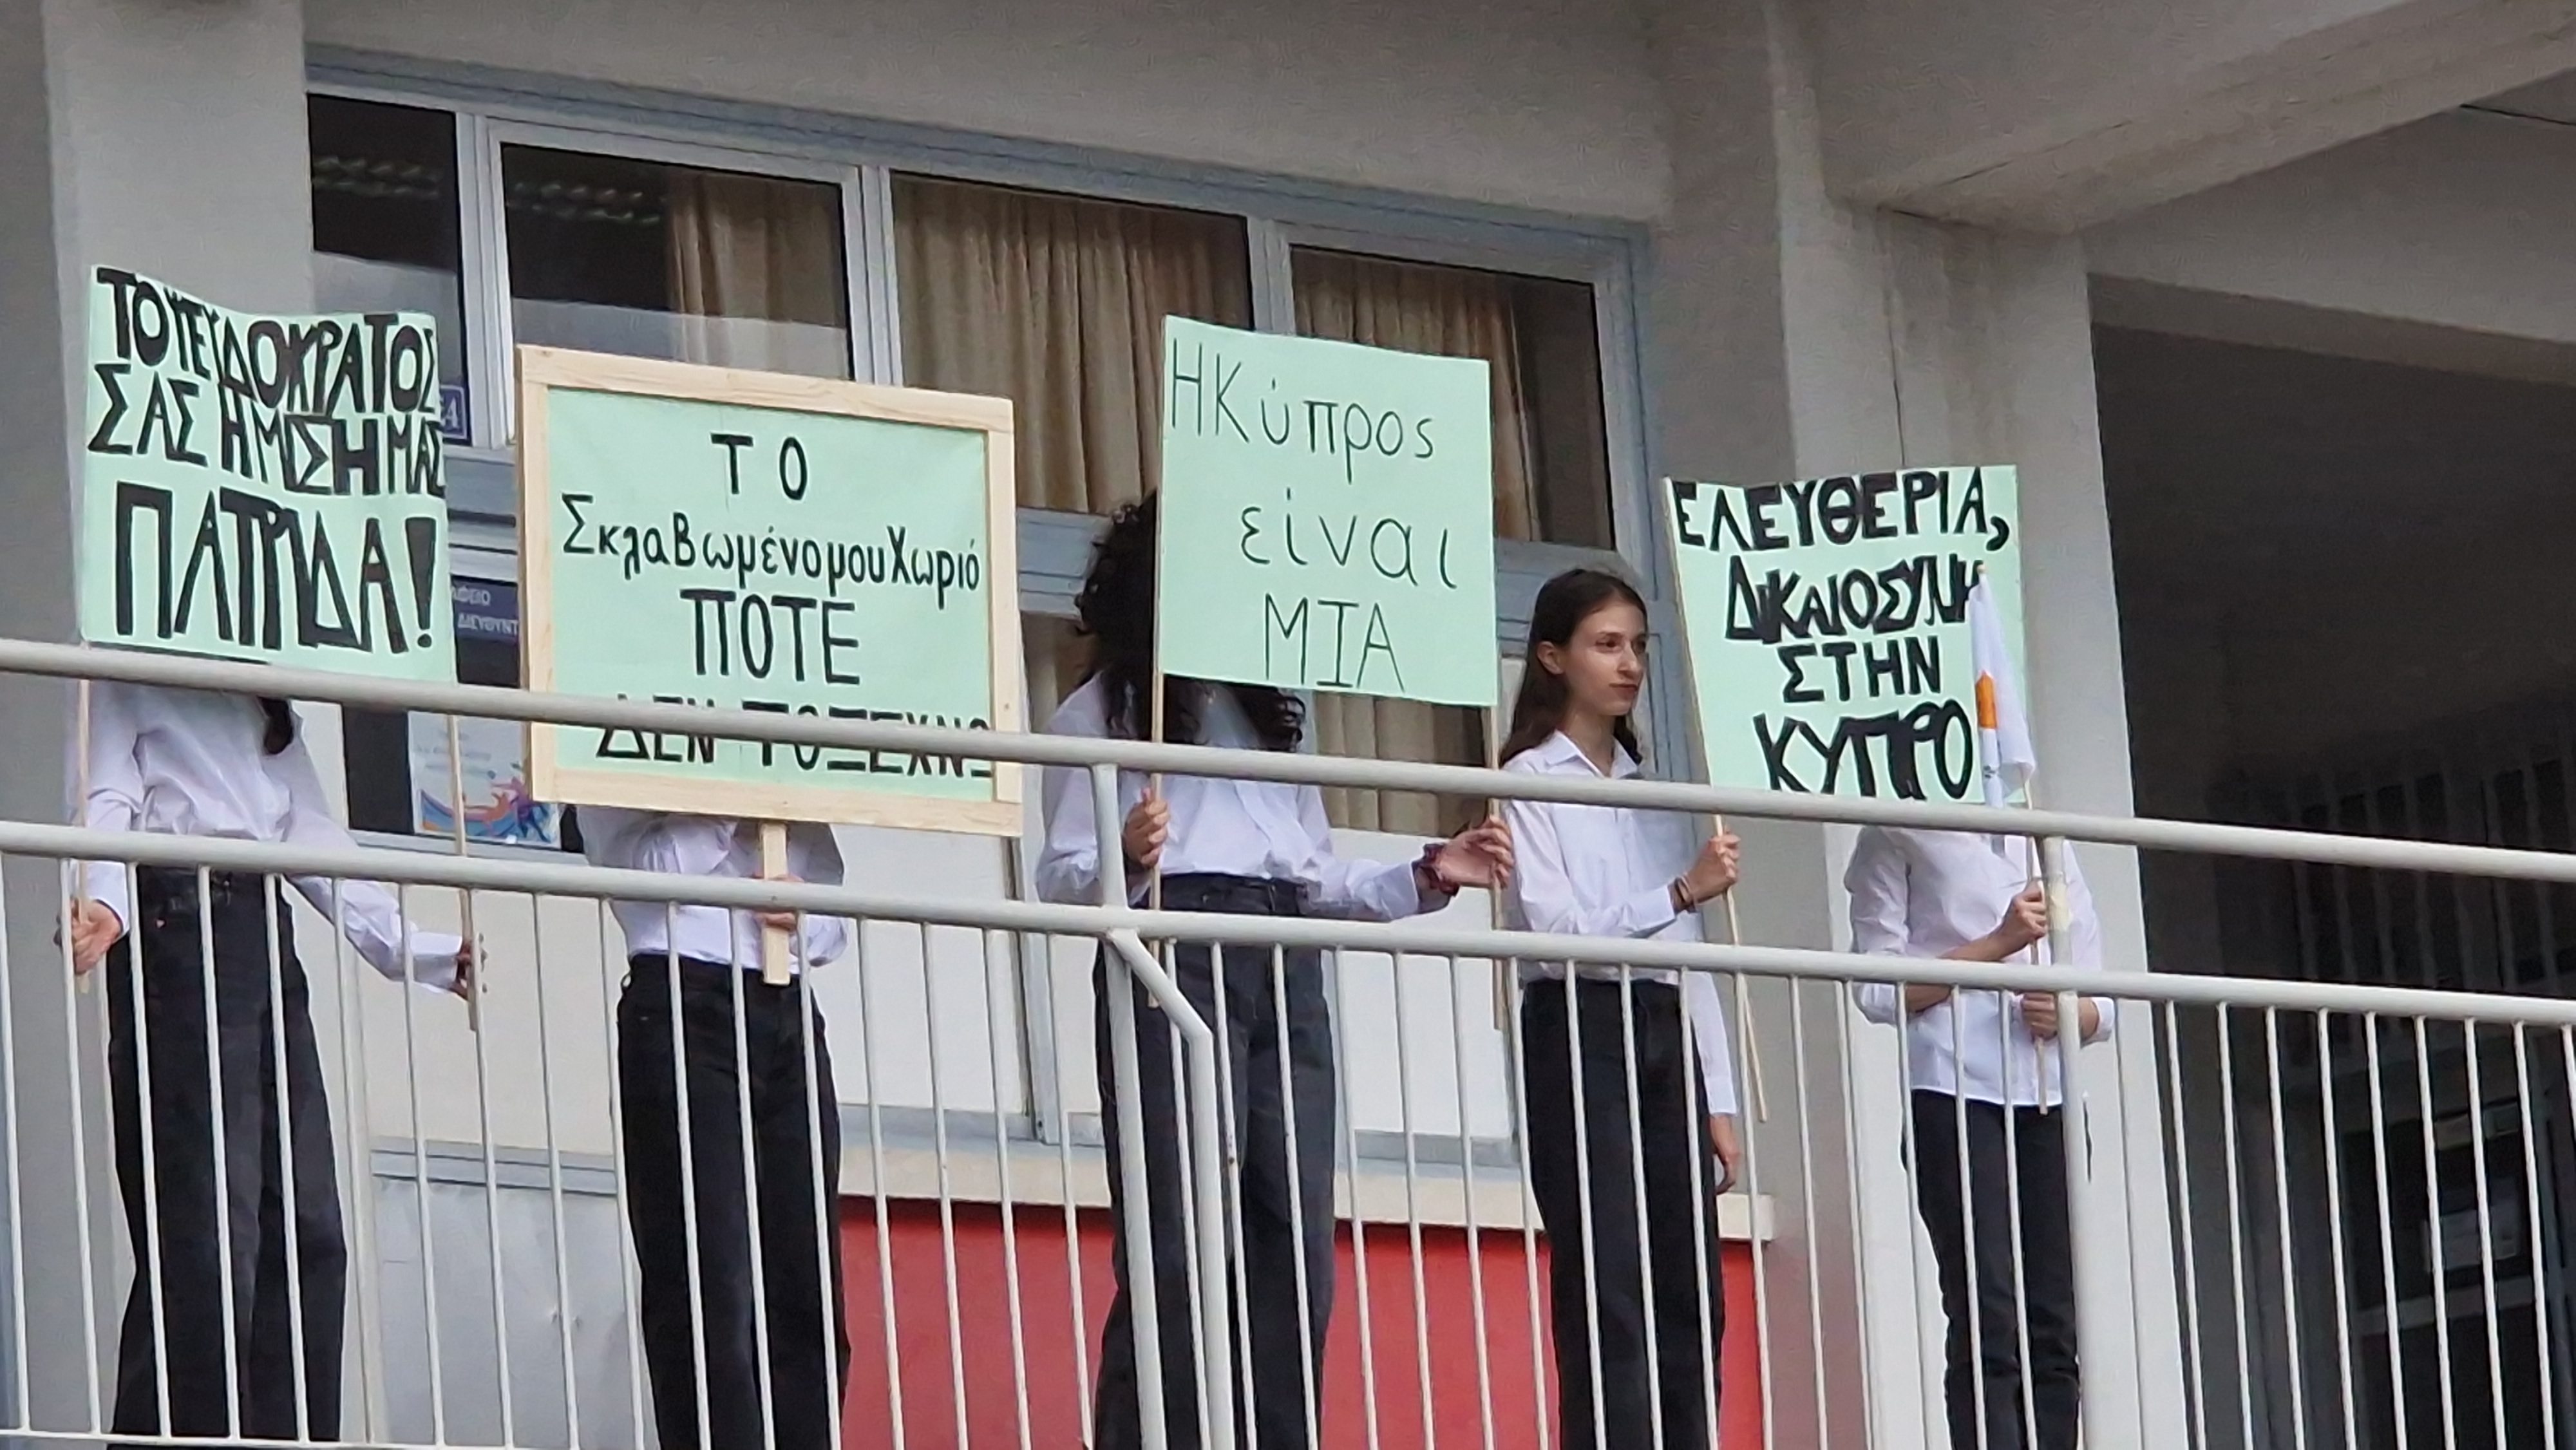 ΤΟ ΨΕΥΔΟΚΡΑΤΟΣ
ΣΑΣ Η ΜΙΣΗ ΜΑΣ
ΠΑΤΡΙΔΑ!
ΤΟ
ΣκλαΒωμένο μου Χωριό
ΠΟΤΕ
ΔΕΝ ΤΟ ΞΕΧΝΩ
Η Κύπρος
είναι
ΜΙΑ
ΕΛΕΥΘΕΡΙΑ,
ΔΙΚΑΙΟΣΥΝΗ
ΣΤΗΝ
ΚΥΠΡΟ